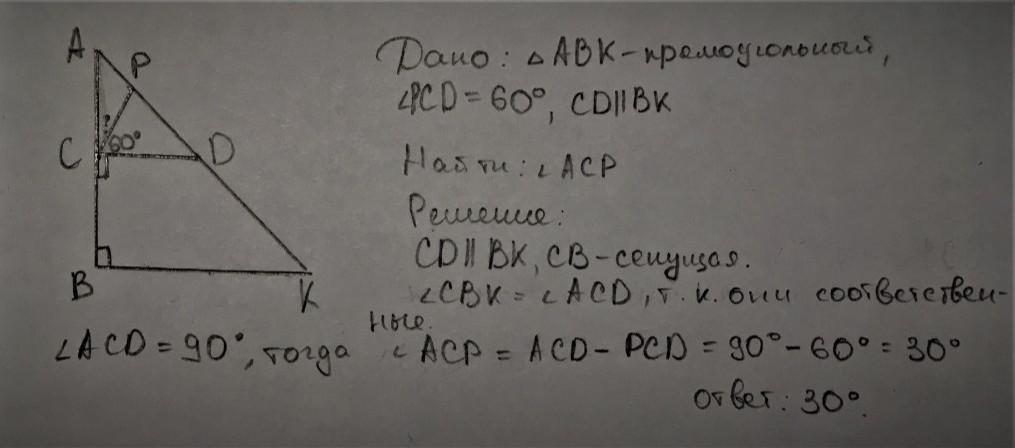 A
P
?
60°
C
D
B
K
Дано: △ABK-прямоугольный,
∠PCD = 60°, CD||BK
Найти: ∠ACP
Решение:
CD || BK, CB-секущая.
∠CBK = ∠ACD, т.к. они соответствен-
ные.
∠ACD = 90°, тогда ∠ACP = ACD - PCD = 90° - 60° = 30°
Ответ: 30°.